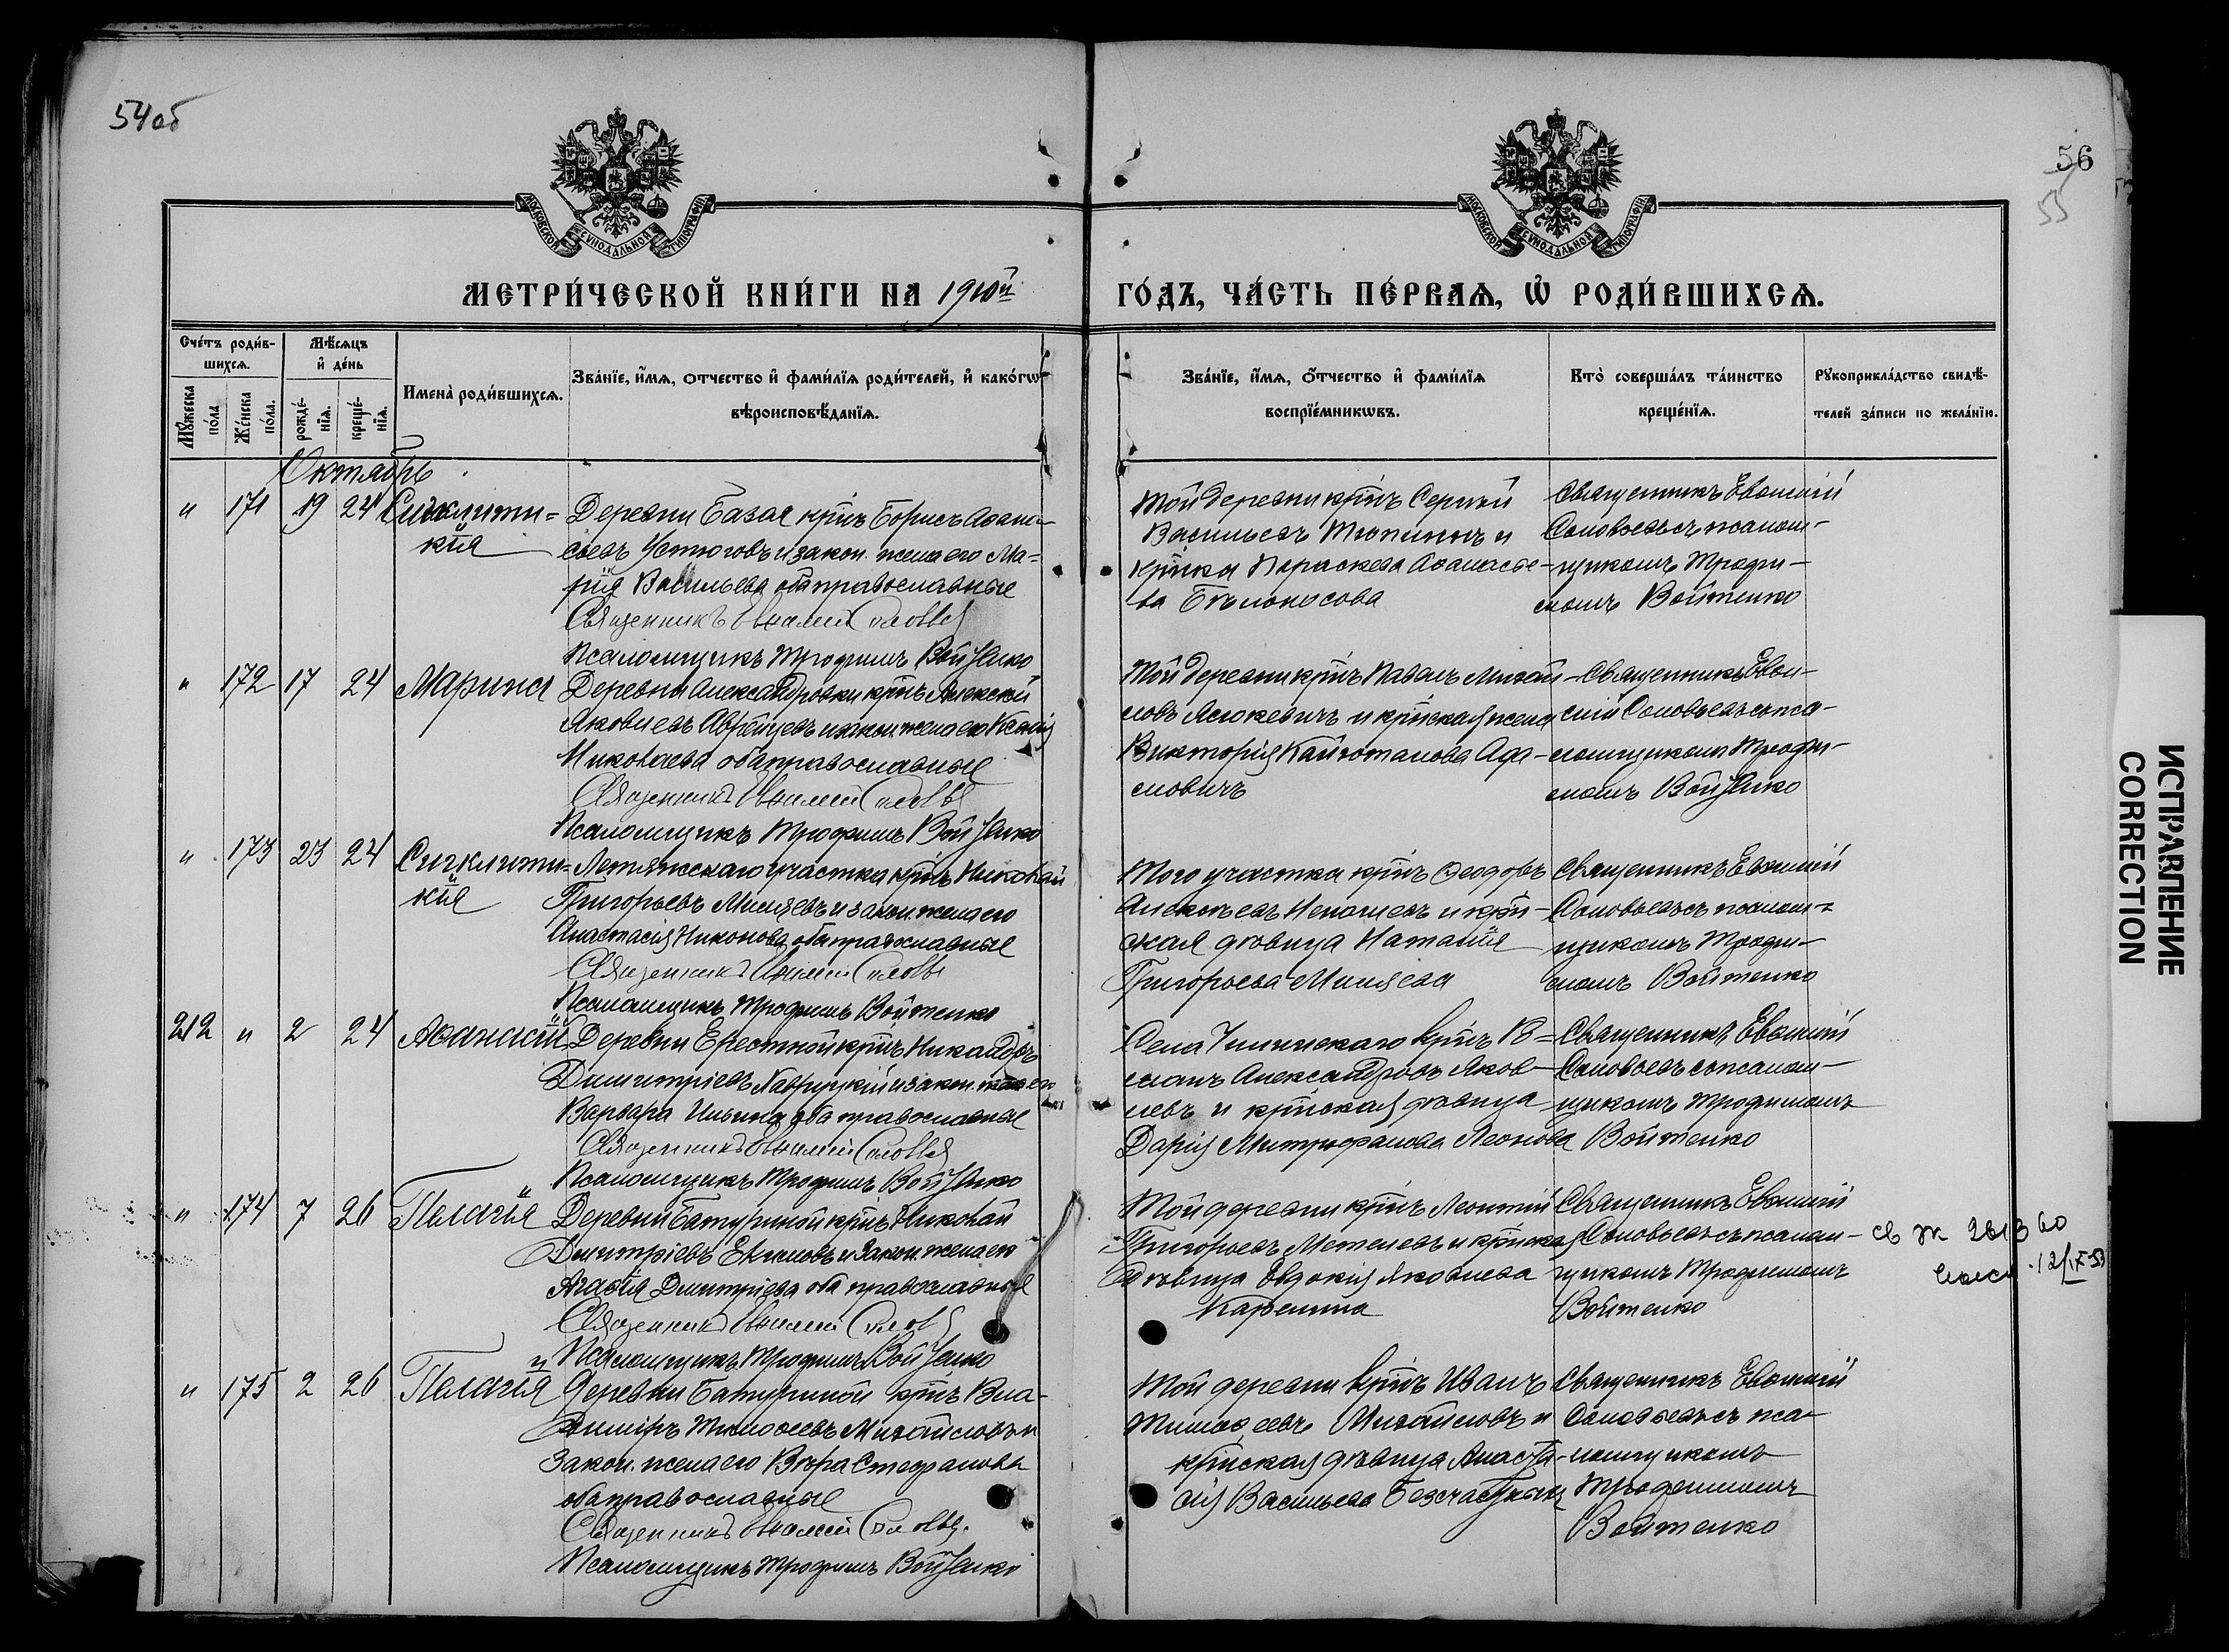 54об
56
55
МОСКОВСКОЙ СѴНОДАЛЬНОЙ ТИПОГРАФІИ
МОСКОВСКОЙ СѴНОДАЛЬНОЙ ТИПОГРАФІИ
МЕТРИ́ЧЕСКОЙ КНИ́ГИ НА 1910й
ГО́ДЪ, ЧА́СТЬ ПЕ́РВАѦ, Ѡ҆ РОДИ́ВШИХСѦ.
Сче́тъ роди́в-
шихсѧ.
Мꙋ́жеска по́ла
Же́нска по́ла.
Мѣ́сѧцъ
и҆ де́нь
рожде́-
нїѧ.
креще́-
нїѧ.
Имена̀ роди́вшихсѧ.
Зва́нїе, и҆́мѧ, ѻ҆́тчество и҆ фами́лїѧ роди́телей, и҆ како́гѡ
вѣроисповѣ́данїѧ.
Зва́нїе, и҆́мѧ, ѻ҆́тчество и҆ фами́лїѧ
воспрїе́мникѡвъ.
Кто̀ соверша́лъ та́инство
креще́нїѧ.
Рꙋкоприкла́дство свидѣ́-
телей за́писи по жела́нїю.
Октябрь
" 171 19 24 Сигклити=
кія
Деревни Базоя крнъ Борисъ Аѳана-
сьевъ Устюговъ и закон. жена его Ма=
рія Васильева оба православные
Священникъ Евѳимій Соловьев
Псаломщикъ Трофимъ Войтенко
Той деревни крнъ Сергѣй
Васильевъ Тюпинъ и
крнка Параскева Аѳанасье-
ва Бѣлоносова
Священникъ Евѳимій
Соловьевъ съ псалом-
щикомъ Трофи-
момъ Войтенко
" 172 17 24 Марина
Деревни Александровки крнъ Алексѣй
Яковлевъ и закон. жена его Ксенія
Николаева оба православные
Священникъ Евѳимій Соловьев
Псаломщикъ Трофимъ Войтенко
Той деревни крнъ Павелъ Михай-
ловъ Асюкевичъ и крнская жена
Викторія Кайтотанова Ада-
мовичъ
Священникъ Евѳи-
мій Соловьевъ съ пса-
ломщикомъ Трофи-
момъ Войтенко
" 173 23 24 Сигклити=
кія
Летяжскаго участка крнъ Николай
Григорьевъ Миляевъ и закон. жена его
Анастасія Никонова оба православные
Священникъ Евѳимій Соловьев
Псаломщикъ Трофимъ Войтенко
Того участка крнъ Ѳеодоръ
Алексѣевъ и крн-
ская дѣвица Наталія
Григорьева Миляева
Священникъ Евѳимій
Соловьевъ съ псалом-
щикомъ Трофи-
момъ Войтенко
212 " 2 24 Аѳанасій
Деревни Ерестной крнъ Никандръ
Димитріевъ Лаврицкій и закон. жена его
Варвара Ильина оба православные
Священникъ Евѳимій Соловьев
Псаломщикъ Трофимъ Войтенко
Села крнъ Р=
манъ Александровъ Яков-
левъ и крнская дѣвица
Дарія Митрофанова Леонова
Священникъ Евѳимій
Соловьевъ съ псалом-
щикомъ Трофимомъ
Войтенко
" 174 7 26 Пелагія
Деревни Батуриной крнъ Николай
Димитріевъ и закон. жена его
Агаѳія Димитріева оба православные
Священникъ Евѳимій Соловьев
Псаломщикъ Трофимъ Войтенко
Той деревни крнъ Леонтій
Григорьевъ Метелевъ и крнская
дѣвица Евдокія Яковлева
Карелина
Священникъ Евѳимій
Соловьевъ съ псалом-
щикомъ Трофимомъ
Войтенко
св Ж 261360
12/IX-53
" 175 2 26 Пелагія
Деревни Батуриной крнъ Вла-
диміръ Тимоѳеевъ Михайловъ и
закон. жена его Вѣра Стефанова
оба православные
Священникъ Евѳимій Соловьев.
Псаломщикъ Трофимъ Войтенко
Той деревни крнъ Иванъ
Тимоѳеевъ Михайловъ и
крнская дѣвица Анаста-
сія Васильева
Священникъ Евѳимій
Соловьевъ съ пса-
ломщикомъ
Трофимомъ
Войтенко
ИСПРАВЛЕНИЕ
CORRECTION